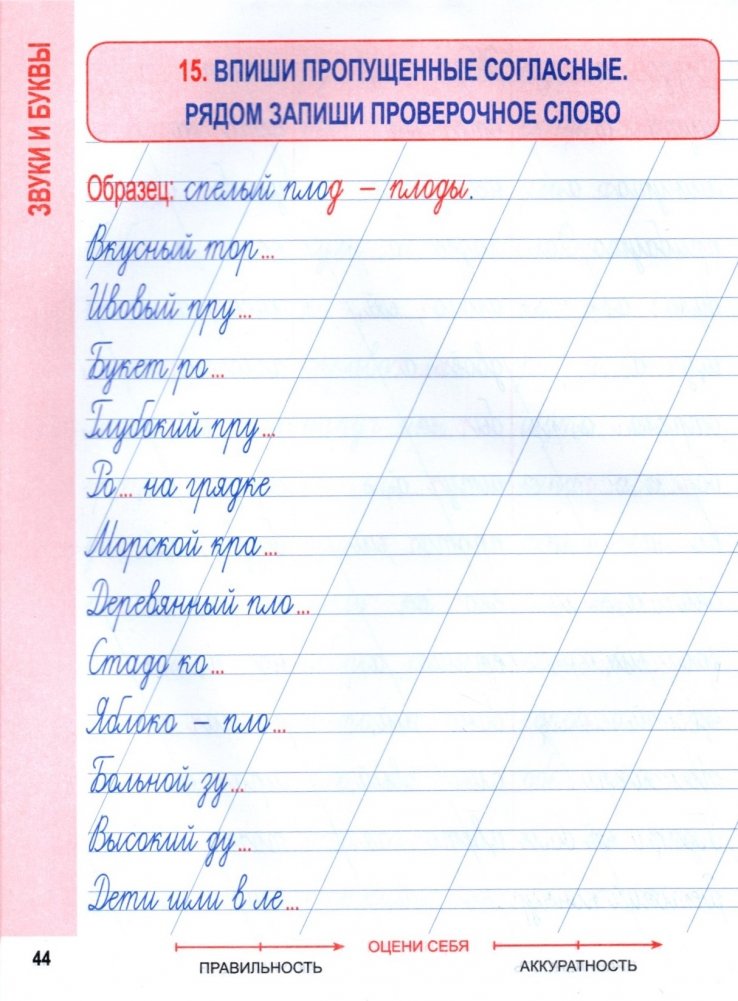 ЗВУКИ И БУКВЫ
15. ВПИШИ ПРОПУЩЕННЫЕ СОГЛАСНЫЕ.
РЯДОМ ЗАПИШИ ПРОВЕРОЧНОЕ СЛОВО
Образец: спелый плод – плоды.
Вкусный тор...
Ивовый пру...
Букет ро...
Глубокий пру...
Ро... на грядке
Морской кра...
Деревянный пло...
Стадо ко...
Яблоко – пло...
Больной зу...
Высокий ду...
Дети шли в ле...
44
ПРАВИЛЬНОСТЬ
ОЦЕНИ СЕБЯ
АККУРАТНОСТЬ